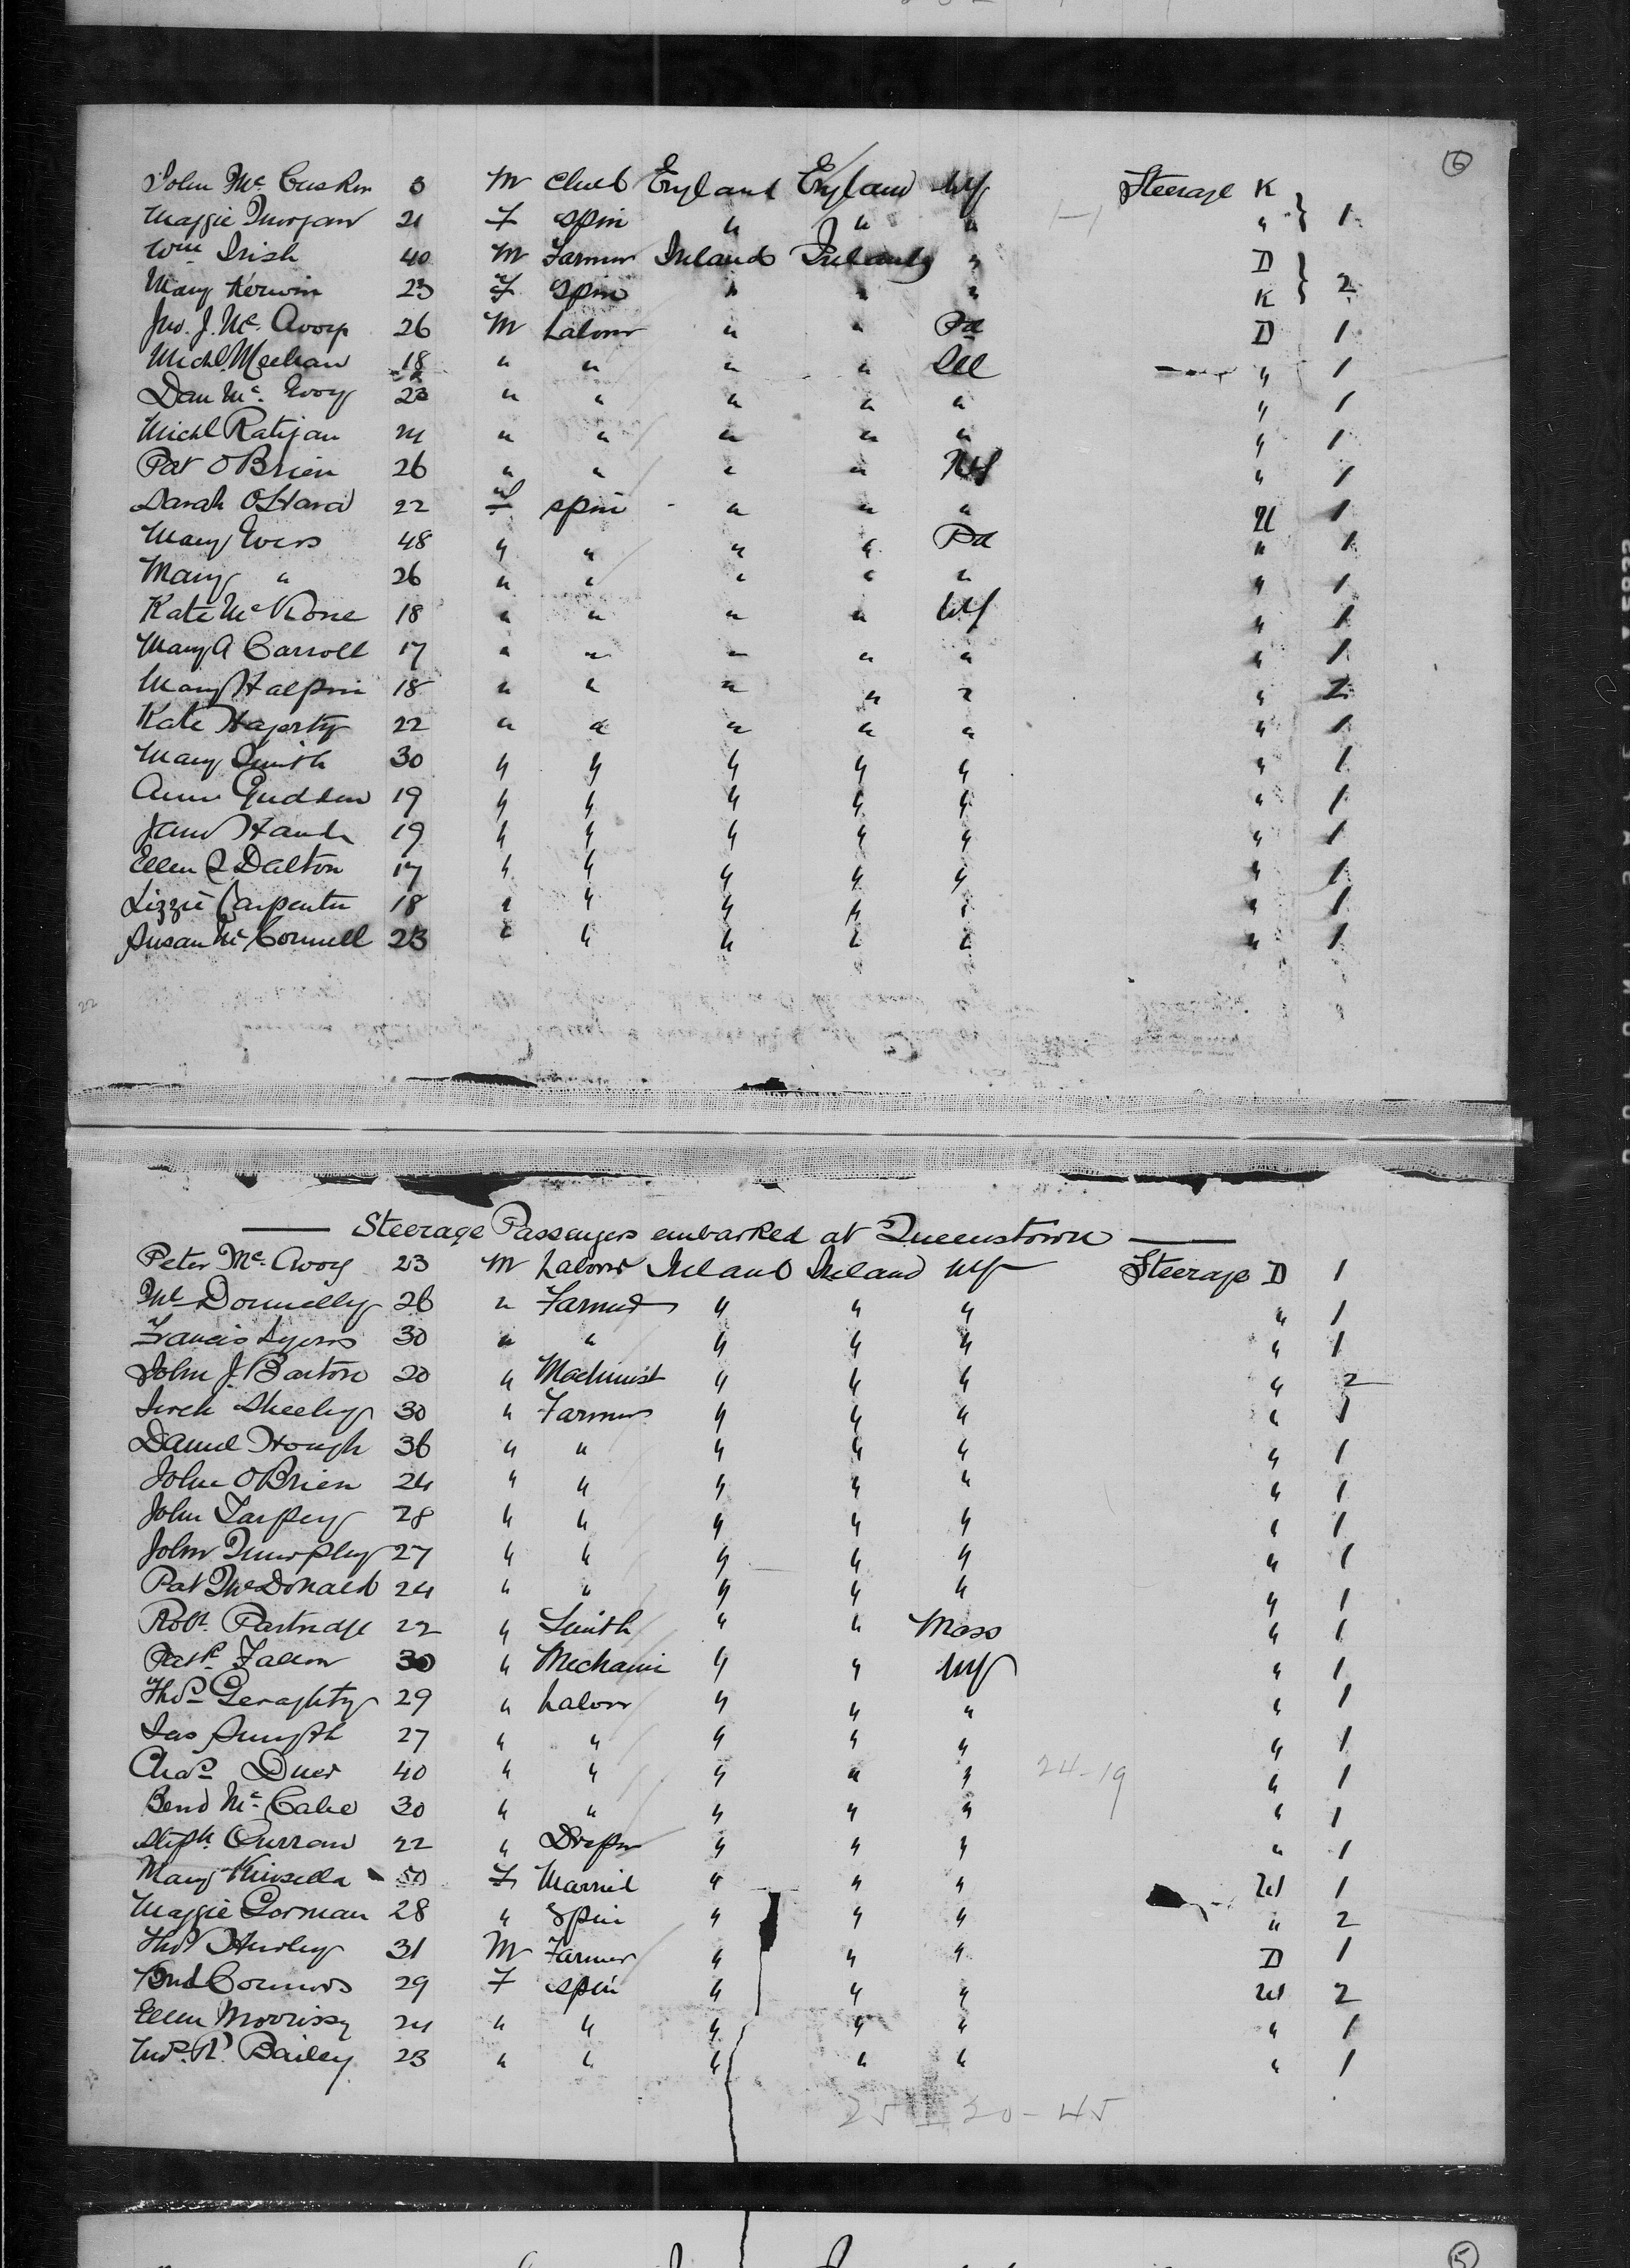 6
John Mc Cusker 3 M Child England England NY Steerage K
Maggie Morgan 21 F spin " " " " 1
Wm Irish 40 M Farmer Ireland Ireland " D
Mary Kerwin 23 F spin " " " K 2
Jno. J. Mc Avoy 26 M Labour " " Pa D 1
Michl Meehan 18 " " " " Ill " 1
Dan Mc Evoy 23 " " " " " " 1
Michl Ratigan 21 " " " " " " 1
Pat O'Brien 26 " " " " NY " 1
Sarah O'Hara 22 F spin " " " W 1
Mary Evers 48 " " " " Pa " 1
Mary " 26 " " " " " " 1
Kate Mc Kone 18 " " " " NY " 1
Mary A Carroll 17 " " " " " " 1
Mary Halpin 18 " " " " " " 2
Kate Hagerty 22 " " " " " " 1
Mary Smith 30 " " " " " " 1
Ann 19 " " " " " " 1
Jane Hand 19 " " " " " " 1
Ellen Dalton 17 " " " " " " 1
Lizzie Carpenter 18 " " " " " " 1
Susan Mc Connell 23 " " " " " " 1
22
Steerage Passengers embarked at Queenstown
Peter Mc Avoy 23 M Labour Ireland Ireland NY Steerage D 1
Donnelly 26 " Farmer " " " " 1
Francis Lyons 30 " " " " " " 1
John J. Barton 20 " Machinist " " " " 2
Sheehy 30 " Farmer " " " " 1
Daniel Hough 36 " " " " " " 1
John O'Brien 24 " " " " " " 1
John Tarpey 28 " " " " " " 1
John Murphy 27 " " " " " " 1
Pat McDonald 24 " " " " " " 1
Robt. Partridge 22 " Smith " " Mass " 1
Patk. Fallon 30 " Mechanic " " NY " 1
Thos. Geraghty 29 " Labour " " " " 1
Jas Smyth 27 " " " " " " 1
Chas. 40 " " " " " 24-19 " 1
Mc Cabe 30 " " " " " " 1
Steph. Curran 22 " Draper " " " " 1
Mary Kinsella 50 F Married " " " W 1
Maggie Gorman 28 " Spin " " " " 2
Thos Hurley 31 M Farmer " " " D 1
Connors 29 F spin " " " W 2
Ellen Morrissy 24 " " " " " " 1
Bailey 23 " " " " " " 1
5